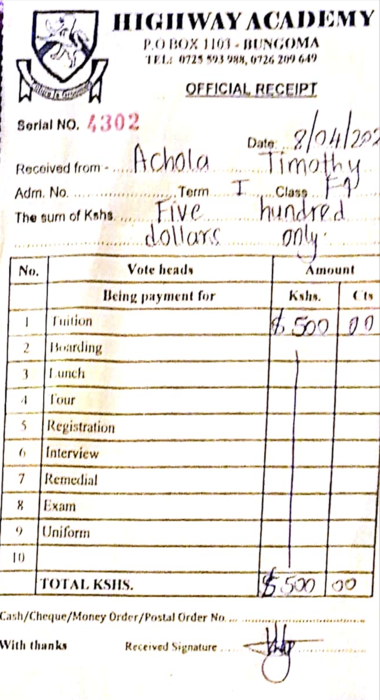 HIGHWAY ACADEMY
P.O BOX 1103 - BUNGOMA
TEL: 0725 593 988, 0726 209 649
OFFICIAL RECEIPT
Serial NO. 4302
Date: 8/04/202
Received from - Achola Timothy
Adm. No. Term I Class F4
The sum of Kshs. Five hundred
dollars only.
No. Vote heads Amount
Being payment for Kshs. Cts
1 Tuition $ 500 00
2 Boarding
3 Lunch
4 Tour
5 Registration
6 Interview
7 Remedial
8 Exam
9 Uniform
10
TOTAL KSHS. $ 500 00
Cash/Cheque/Money Order/Postal Order No.
With thanks Received Signature